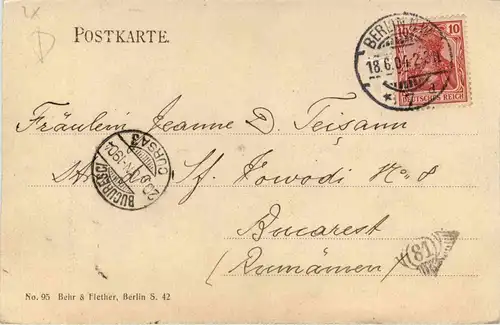 POSTKARTE.
BERLIN
18.6.04.
10
DEUTSCHES REICH
Fräulein Jeanne D. Teișanu
Strada Sf. Voivodi No 8
CURSA 3
BUCURESCI
Bucarest
(Rumänien)
(81)
No. 95 Behr & Flether, Berlin S. 42